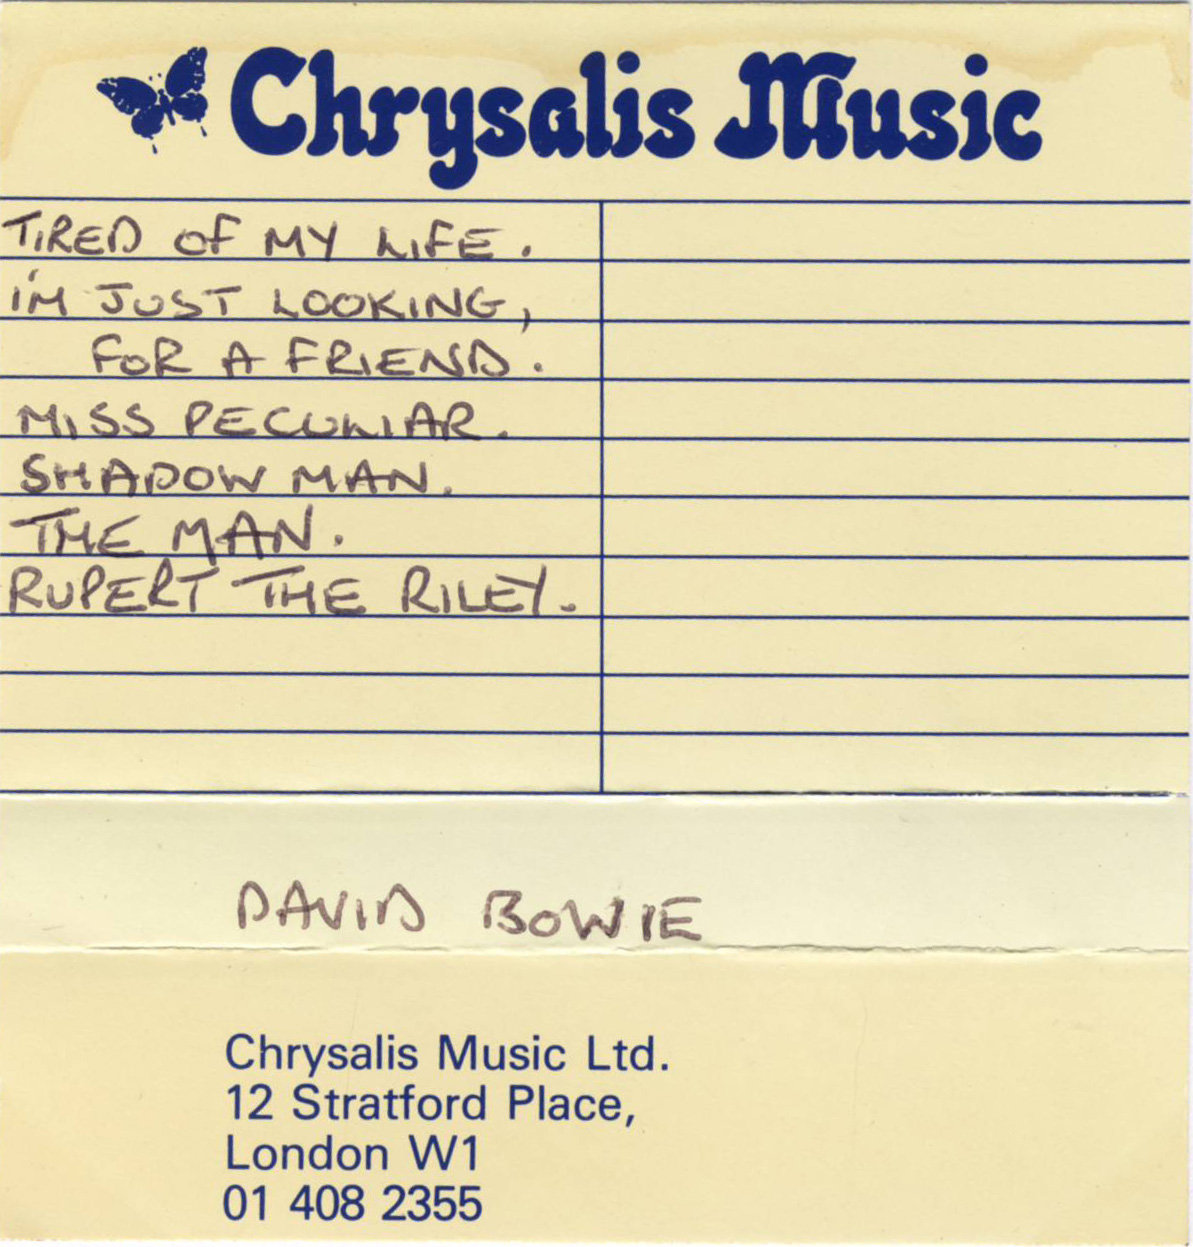 Chrysalis Music
TIRED OF MY LIFE.
I'M JUST LOOKING,
FOR A FRIEND.
MISS PECULIAR.
SHADOW MAN.
THE MAN.
RUPERT THE RILEY.
DAVID BOWIE
Chrysalis Music Ltd.
12 Stratford Place,
London W1
01 408 2355